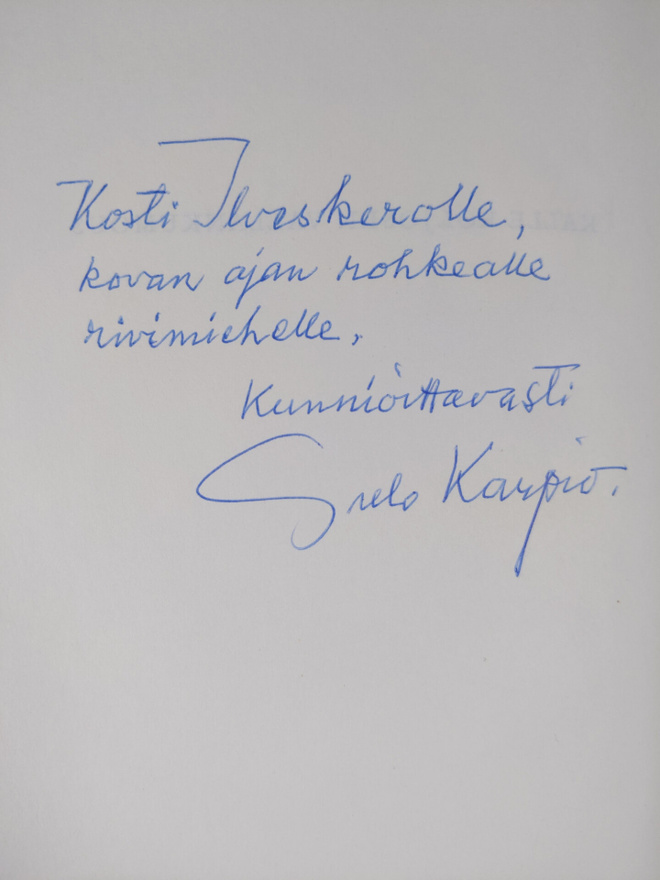 Kosti Ilveskerolle,
kovan ajan rohkealle
rivimiehelle.
Kunnioittavasti
Karpio.